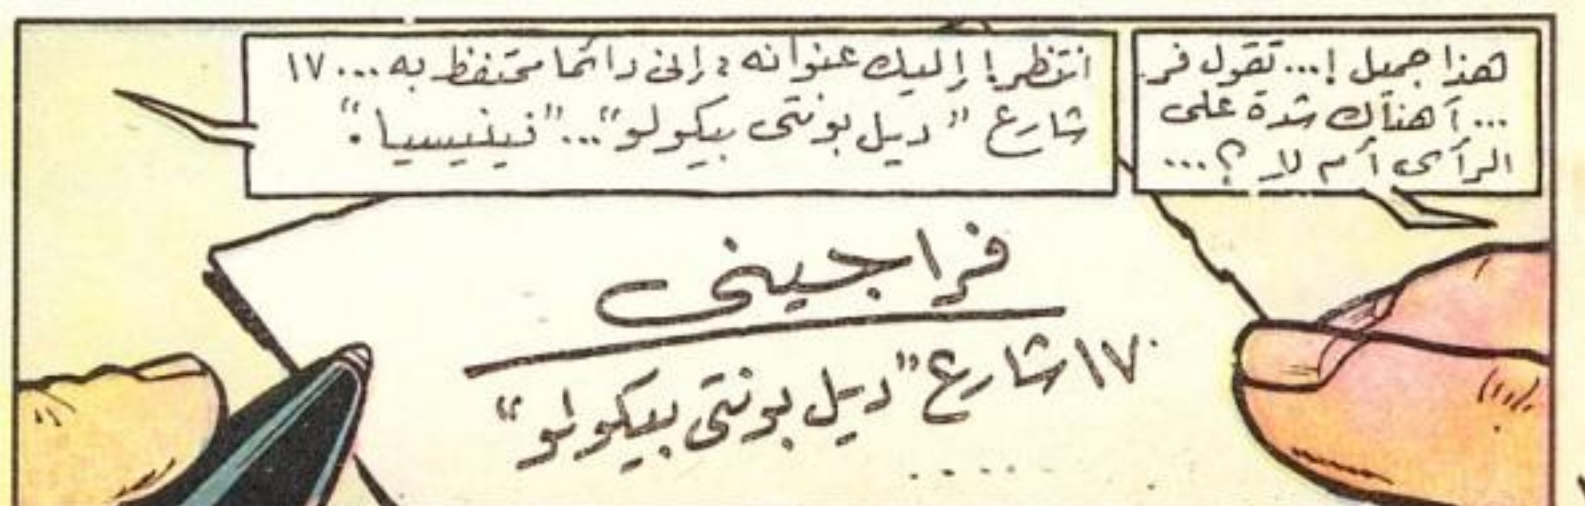 هذا جميل !... تقول فر
... أهناك شدة على
الرأى أم لا ؟...
انتظر! إليك عنوانه ; إنى دائما محتفظ به ... ١٧
شارع " ديل بونتى بيكولو"... "فينيسيا ".
فراجينى
١٧ شارع "ديل بونتى بيكولو"
.....